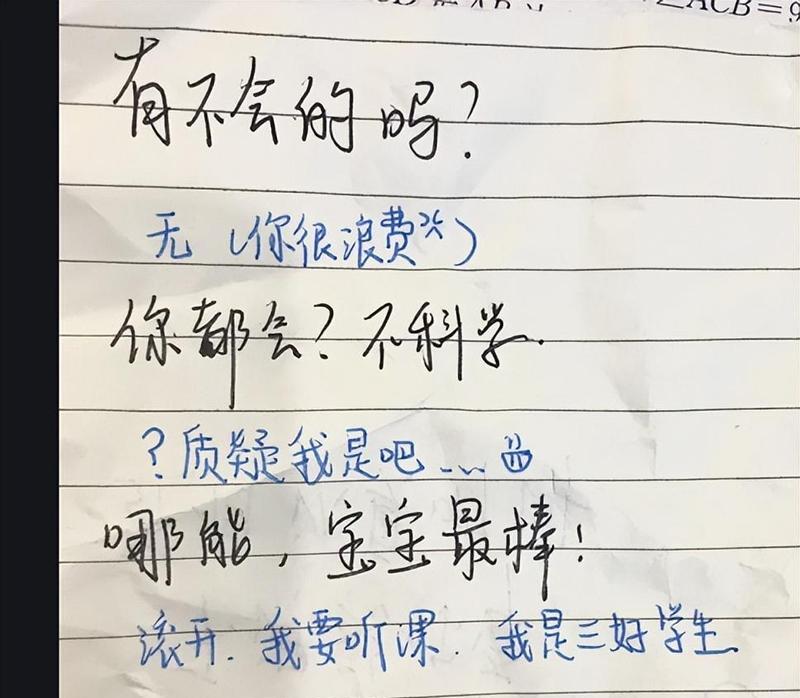 ∠ACB=9
有不会的吗?
无 (你很浪费光)
你都会?不科学.
?质疑我是吧....
哪能,宝宝最棒!
滚开.我要听课.我是三好学生